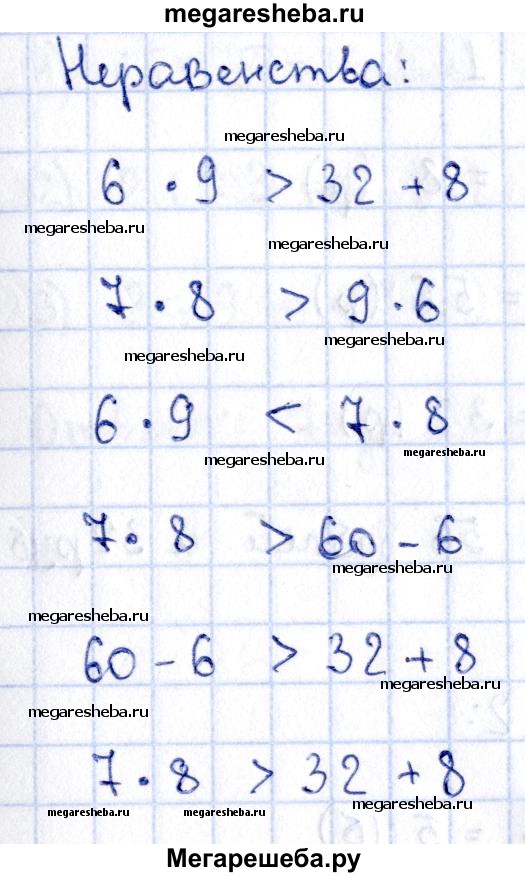 megaresheba.ru
Неравенства:
megaresheba.ru
6 · 9 > 32 + 8
megaresheba.ru
megaresheba.ru
7 · 8 > 9 · 6
megaresheba.ru
megaresheba.ru
6 · 9 < 7 · 8
megaresheba.ru
megaresheba.ru
7 · 8 > 60 - 6
megaresheba.ru
megaresheba.ru
60 - 6 > 32 + 8
megaresheba.ru
megaresheba.ru
7 · 8 > 32 + 8
megaresheba.ru
megaresheba.ru
megaresheba.ru
Мегарешеба.ру